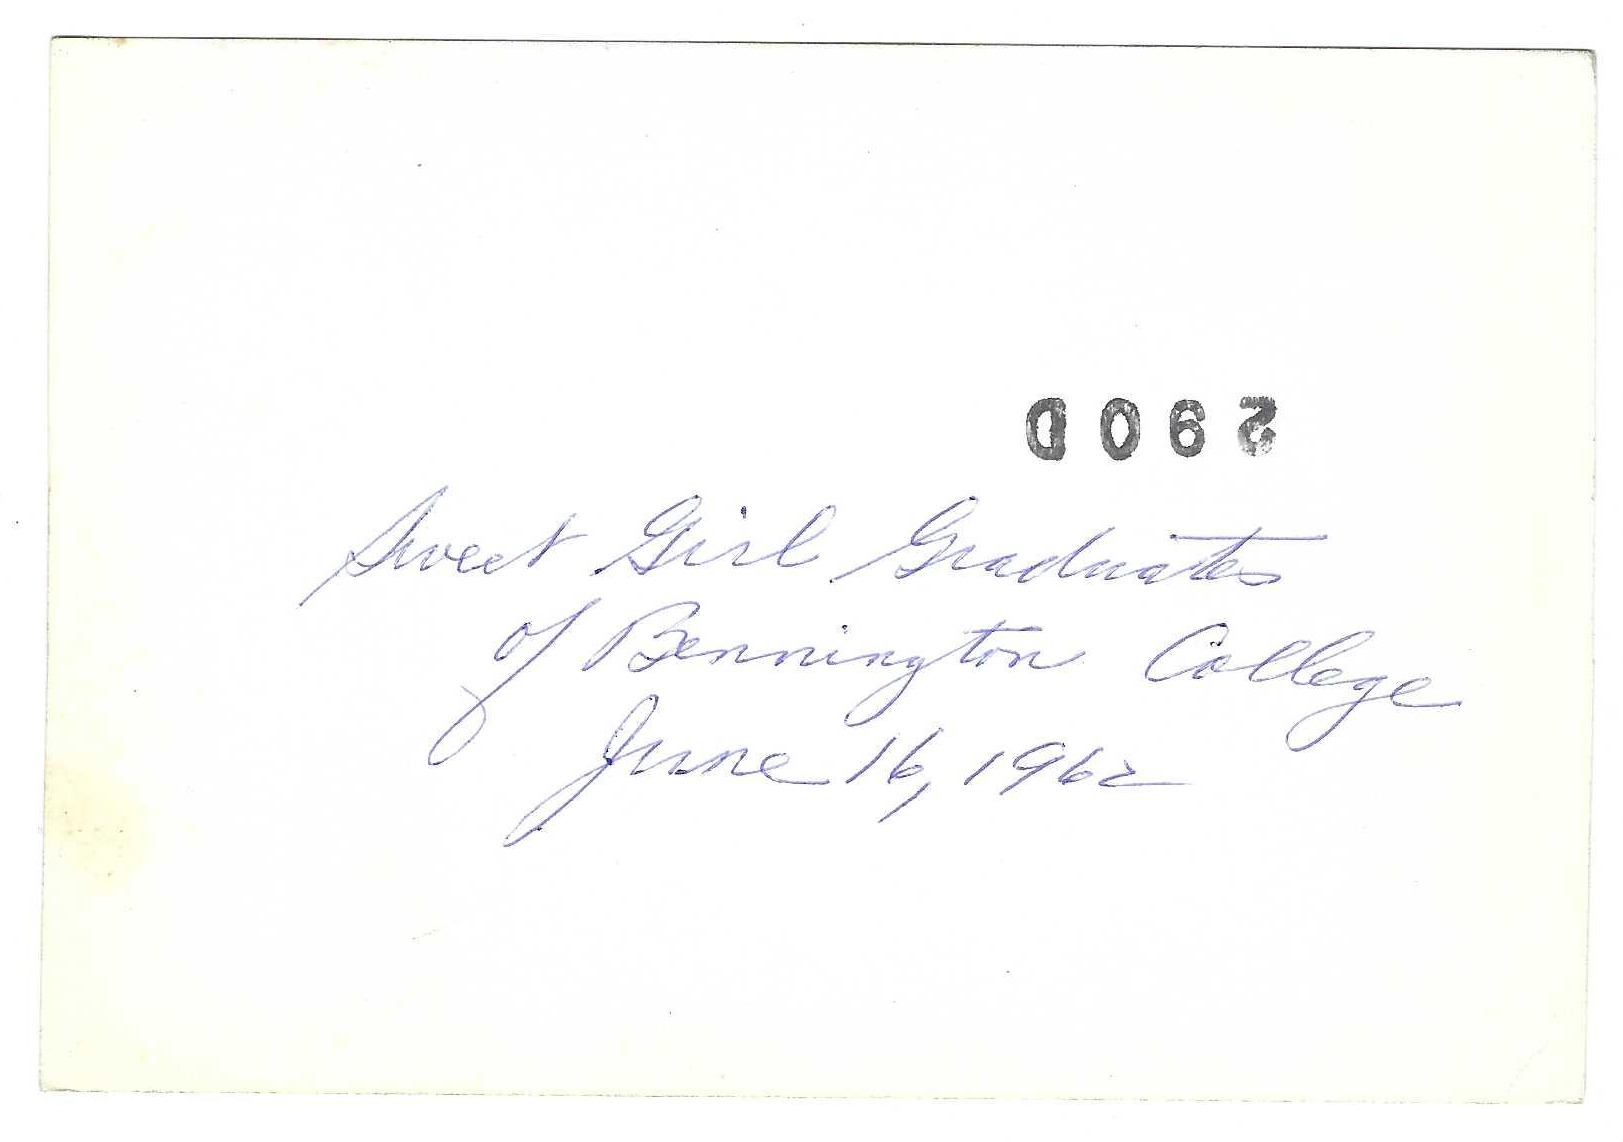 290D
Sweet Girl Graduates
of Bennington College
June 16, 1962